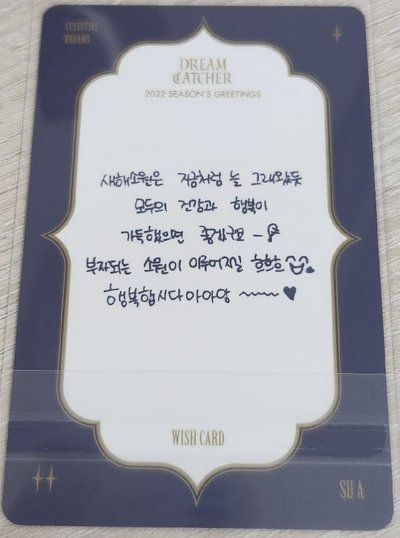 CELESTIAL
DREAMS
DREAM
CATCHER
2022 SEASON'S GREETINGS
새해소원은 지금처럼 늘 그래왔듯
모두의 건강과 행복이
가득했으면 좋겠군요 ~
부자되는 소원이 이루어지길 흐흐흐
행복합시다아아앙 ~~~~ ♥
WISH CARD
SU A